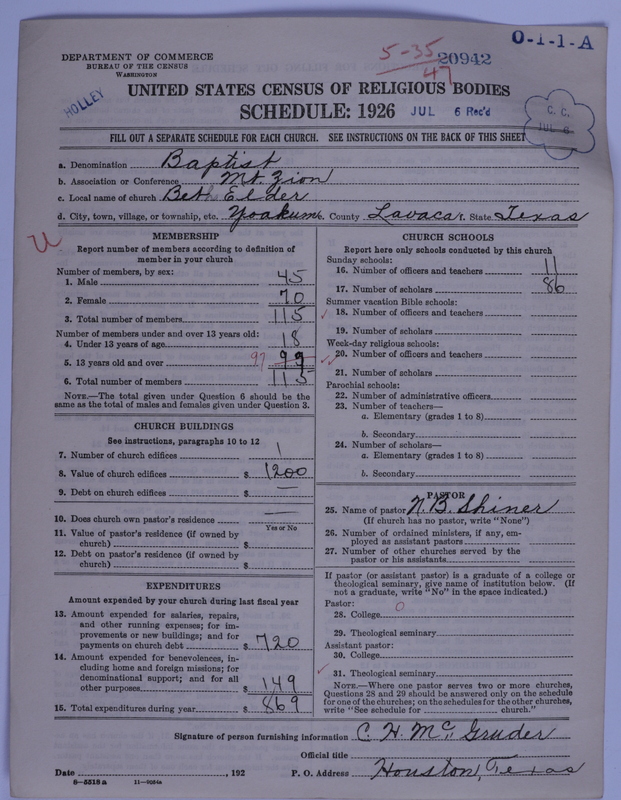 O-1-1-A
5-35 20942
47
DEPARTMENT OF COMMERCE
BUREAU OF THE CENSUS
WASHINGTON
HOLLEY
UNITED STATES CENSUS OF RELIGIOUS BODIES
SCHEDULE: 1926 JUL 6 Rec'd
C. C.
JUL 6
FILL OUT A SEPARATE SCHEDULE FOR EACH CHURCH. SEE INSTRUCTIONS ON THE BACK OF THIS SHEET
a. Denomination Baptist
b. Association or Conference Mt. Zion
c. Local name of church Beth Elder
d. City, town, village, or township, etc. Yoakum e. County Lavaca f. State Texas
MEMBERSHIP
Report number of members according to definition of
member in your church
Number of members, by sex:
1. Male 45
2. Female 70
3. Total number of members 115
Number of members under and over 13 years old:
4. Under 13 years of age 18
5. 13 years old and over 97 99
6. Total number of members 115
NOTE.—The total given under Question 6 should be the
same as the total of males and females given under Question 3.
CHURCH BUILDINGS
See instructions, paragraphs 10 to 12
7. Number of church edifices 1
8. Value of church edifices $ 1200
9. Debt on church edifices $ —
10. Does church own pastor's residence —
Yes or No
11. Value of pastor's residence (if owned by
church) $
12. Debt on pastor's residence (if owned by
church) $
EXPENDITURES
Amount expended by your church during last fiscal year
13. Amount expended for salaries, repairs,
and other running expenses; for im-
provements or new buildings; and for
payments on church debt $ 720
14. Amount expended for benevolences, in-
cluding home and foreign missions; for
denominational support; and for all
other purposes $ 149
15. Total expenditures during year $ 869
CHURCH SCHOOLS
Report here only schools conducted by this church
Sunday schools:
16. Number of officers and teachers 11
17. Number of scholars 86
Summer vacation Bible schools:
18. Number of officers and teachers
19. Number of scholars
Week-day religious schools:
20. Number of officers and teachers
21. Number of scholars
Parochial schools:
22. Number of administrative officers
23. Number of teachers—
a. Elementary (grades 1 to 8)
b. Secondary
24. Number of scholars—
a. Elementary (grades 1 to 8)
b. Secondary
PASTOR
25. Name of pastor N. B. Shiner
(If church has no pastor, write "None")
26. Number of ordained ministers, if any, em-
ployed as assistant pastors
27. Number of other churches served by the
pastor or his assistants
If pastor (or assistant pastor) is a graduate of a college or
theological seminary, give name of institution below. (If
not a graduate, write "No" in the space indicated.)
Pastor: 0
28. College
29. Theological seminary
Assistant pastor:
30. College
31. Theological seminary
NOTE.—Where one pastor serves two or more churches,
Questions 28 and 29 should be answered only on the schedule
for one of the churches; on the schedules for the other churches,
write "See schedule for church."
Signature of person furnishing information C. H. McGruder
Official title
Date , 192 P. O. Address Houston, Texas
8-5518 a 11-9034a